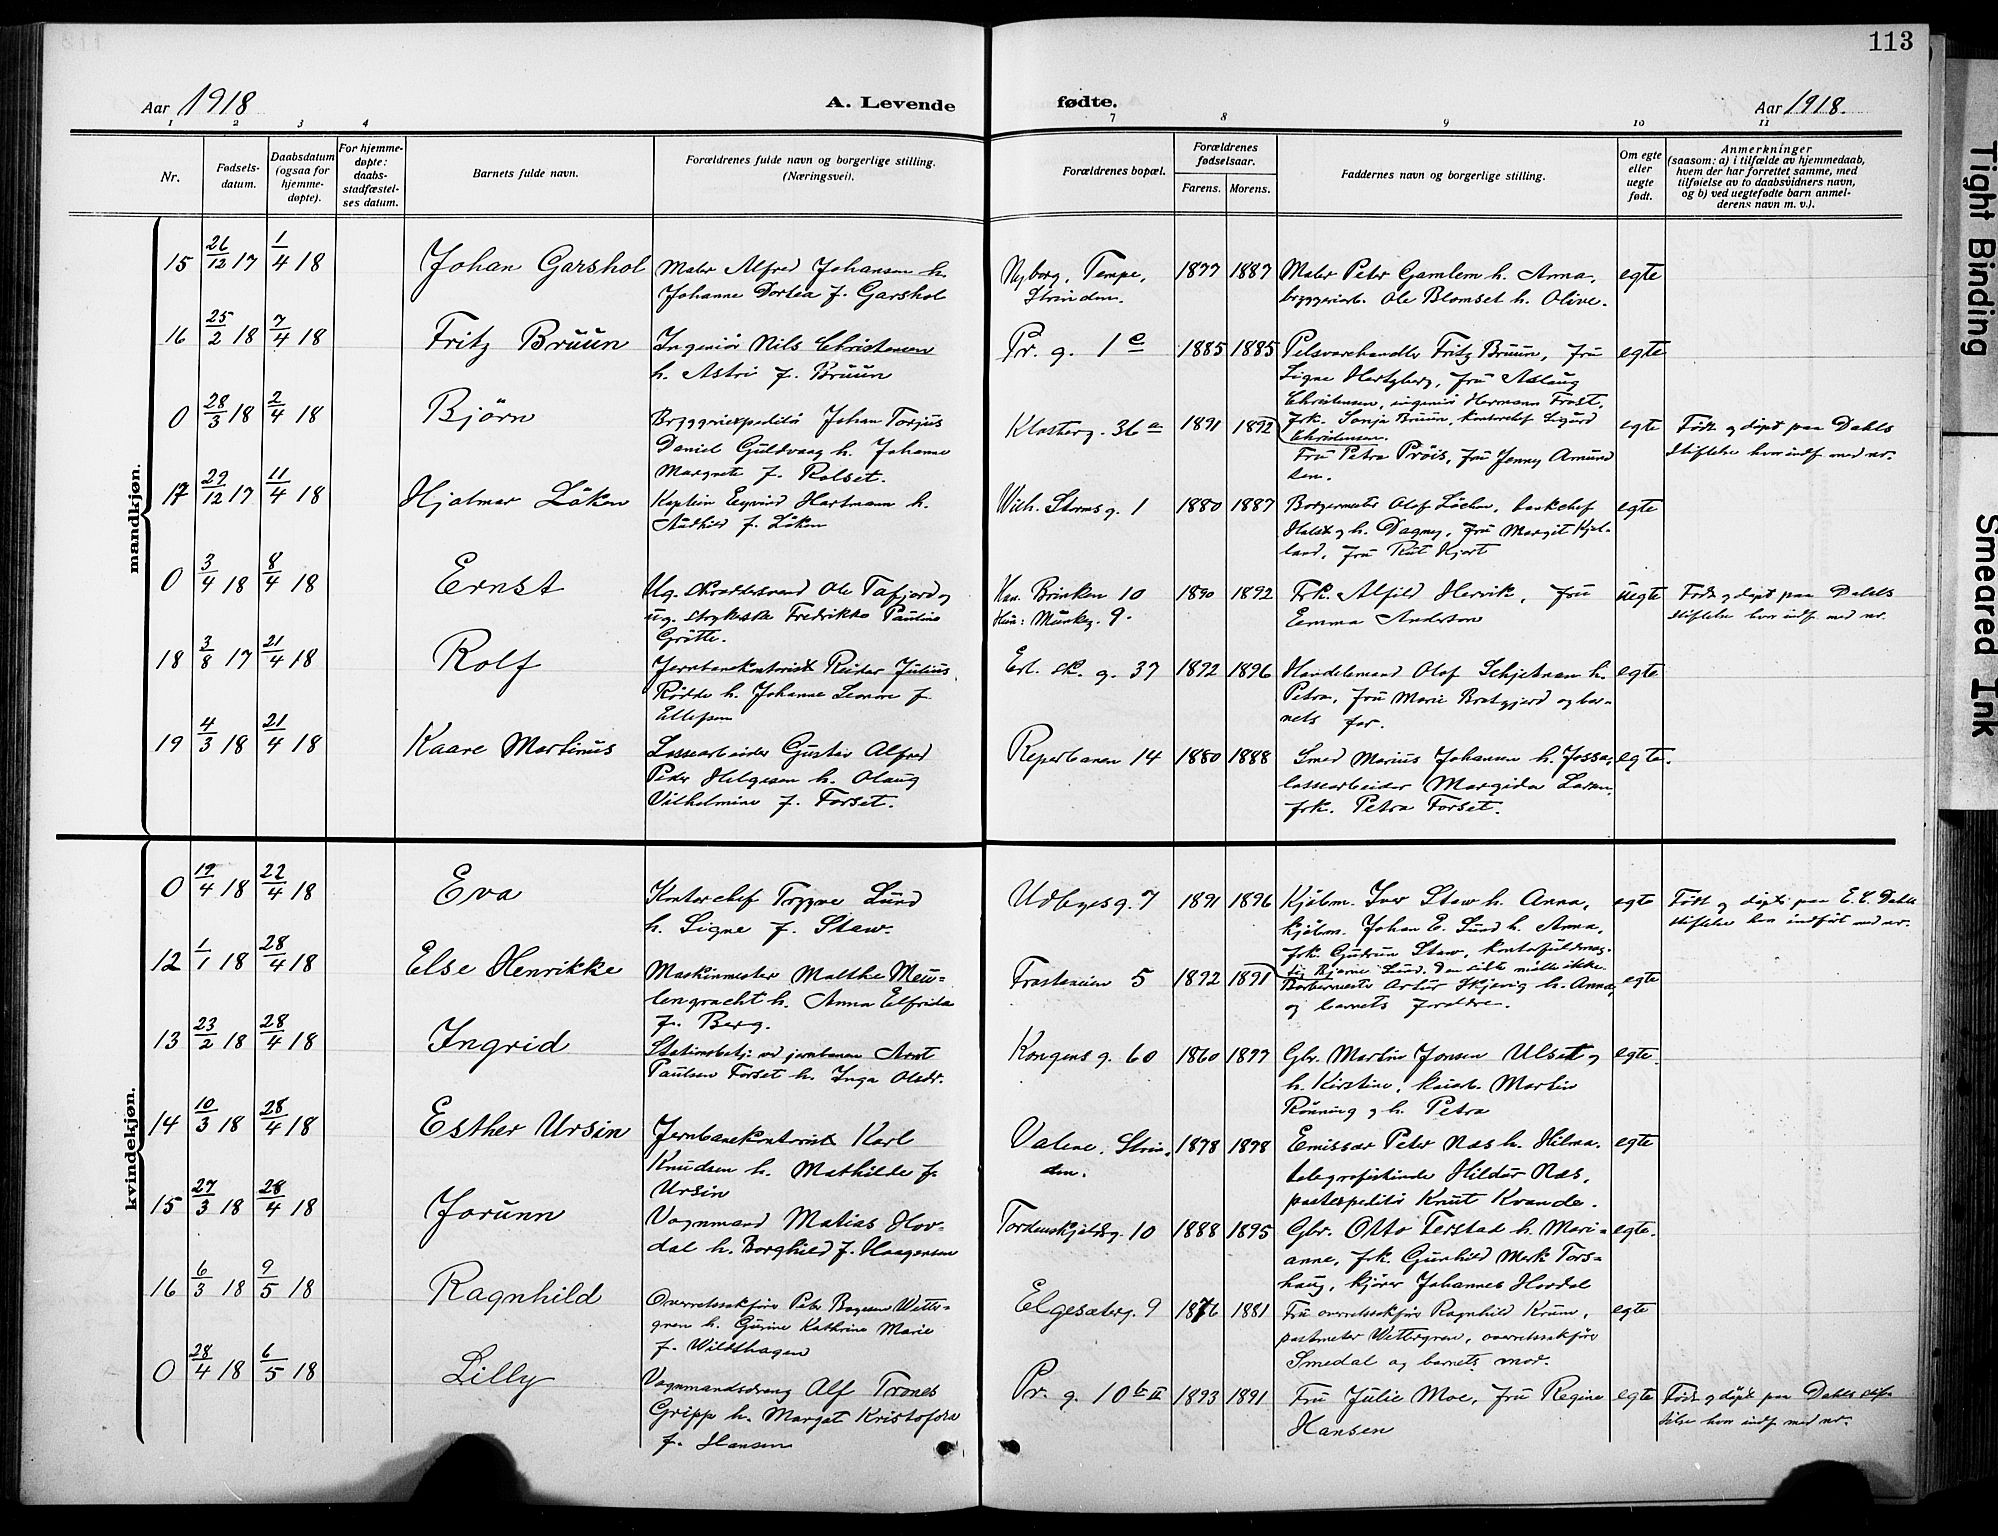 113
Aar 1918
A. Levende
fødte.
Aar 1918.
1 2 3 4 7 8 9 10 11
Nr.
Fødsels-
datum.
Daabsdatum
(ogsaa for
hjemme-
døpte).
For hjemme-
døpte:
daabs-
stadfæstel-
ses datum.
Barnets fulde navn.
Forældrenes fulde navn og borgerlige stilling.
(Næringsvei).
Forældrenes bopæl.
Forældrenes
fødselsaar.
Farens. Morens.
Faddernes navn og borgerlige stilling.
Om egte
eller
uegte
født.
Anmerkninger
(saasom: a) i tilfælde av hjemmedaab,
hvem der har forrettet samme, med
tilføielse av to daabsvidners navn,
og b) ved uegtefødte barn anmel-
derens navn m. v.).
mandkjøn.
15 26/12 17 1/4 18 Johan Garshol Maler Alfred Johansen h. Nyborg, Tempe, 1877 1887 Maler Peter Gamlem h. Anna, egte
Johanne Dortea f. Garshol Strinden. bryggeriarb. Ole Blomset h. Olive.
16 25/2 18 7/4 18 Fritz Bruun Ingeniør Nils Christensen Pr. g. 1 c 1885 1885 Pelsvarehandler Fritz Bruun, fru egte
h. Astri f. Bruun Signe Hartzberg, fru Aslaug
Christensen, ingeniør Hermann Frost,
frk. Sonja Bruun, kontorchef Sigurd
Christensen.
0 28/3 18 2/4 18 Bjørn Bryggeriexpeditør Johan Torjus Klosterg. 36 a 1891 1892 Fru Petra Prøis, fru Jenny Amund egte Født og døpt paa Dahls
Daniel Guldvaag h. Johanne sen. Stiftelse hvor indf. med nr.
Margrete f. Rolset.
17 29/12 17 11/4 18 Hjalmar Løken Kaptein Eyvind Hartmann h. Wilh. Storms g. 1 1880 1887 Borgermester Olaf Løchen, bankchef egte
Audhild f. Løken Holst og h. Dagny, fru Margit Kjel-
land, fru Rut Hjort
0 3/4 18 8/4 18 Ernst Ug. skræddersvend Ole Tafjord og Han: Brinken 10 1890 1892 Frk. Alfild Hervik, fru uegte Født og døpt paa Dahls
ug. strykerske Fredrikke Pauline Hun: Munkeg. 9. Emma Anderson Stiftelse hvor indf. med nr.
Grøtte.
18 3/8 17 21/4 18 Rolf Jernbanekontorist Reidar Julius Erl. sk. g. 37 1892 1896 Handelsmand Olaf Schjetnan h. egte
Rødde h. Johanne f. Petra, fru Marie Bratgjerd og bar-
Ellefsen nets far.
19 4/3 18 21/4 18 Kaare Martinus Lossearbeider Gustav Alfred Reperbanen 14 1880 1888 Smed Marius Johansen h. egte.
Peder Helgesen h. Olaug lossearbeider
Vilhelmine f. Forset. frk. Petra Forset.
kvindekjøn.
0 19/4 18 22/4 18 Eva Kontorchef Trygve Lund Udbyesg. 7 1891 1896 Kjøbm. Iver Staw h. Anna, egte Født og døpt paa E. C. Dahls
h. Signe f. Staw. kjøbm. Johan E. Lund h. Anna, stiftelse hvor indført med nr.
frk. Gudrun Staw, kontorfuldmæg-
tig Bjarne Lund. Den siste møtte ikke.
12 1/1 18 28/4 18 Else Henrikke Maskinmester Malthe Meu- Frostaveien 5 1892 1891 Barbermester Artur Skjevig h. Anna, egte
lengracht h. Anna Elfrida og barnets forældre.
f. Berg.
13 23/2 18 28/4 18 Ingrid Stationsbetj. ved jernbanen Arnt Kongens g. 60 1860 1877 Gbr. Martin Jonsen Ulset og egte.
Paulsen Forset h. Inga Olsdr. h. Kirstine, Martin
Rønning og h. Petra
14 10/3 18 28/4 18 Esther Ursin Jernbanekontorist Karl Valene, Strin- 1878 1878 Emissær Peter Næs h. Hilma, egte
Knudsen h. Mathilde f. den. telegrafistinde Hildur Næs,
Ursin postexpeditør Knut Kvande.
15 27/3 18 28/4 18 Jorunn Vognmand Matias Hov- Tordenskjoldsg. 10 1888 1895 Gbr. Otto Ierstad h. Mari- egte.
dal h. Borghild f. Haagensen anne, frk. Gunhild Mork Tors-
haug, kjører Johannes Hovdal
16 6/3 18 9/5 18 Ragnhild Overretssakfører Peter Bogesen Wetter- Elgesæterg. 9 1876 1881 Fru overretssakfører Ragnhild Krum, egte
gren h. Gurine Kathrine Marie postmester Wettergren, overretssakfører
f. Wildthagen Smedal og barnets mor.
0 28/4 18 6/5 18 Lilly Vognmandsdreng Alf Trones Pr. g. 10 b II 1893 1891 Fru Julie Moe, fru Regine egte Født og døpt paa Dahls stif-
Gripp h. Margot Kristofora Hansen telse hvor indf. med nr.
f. Hansen
Tight Binding
Smeared Ink